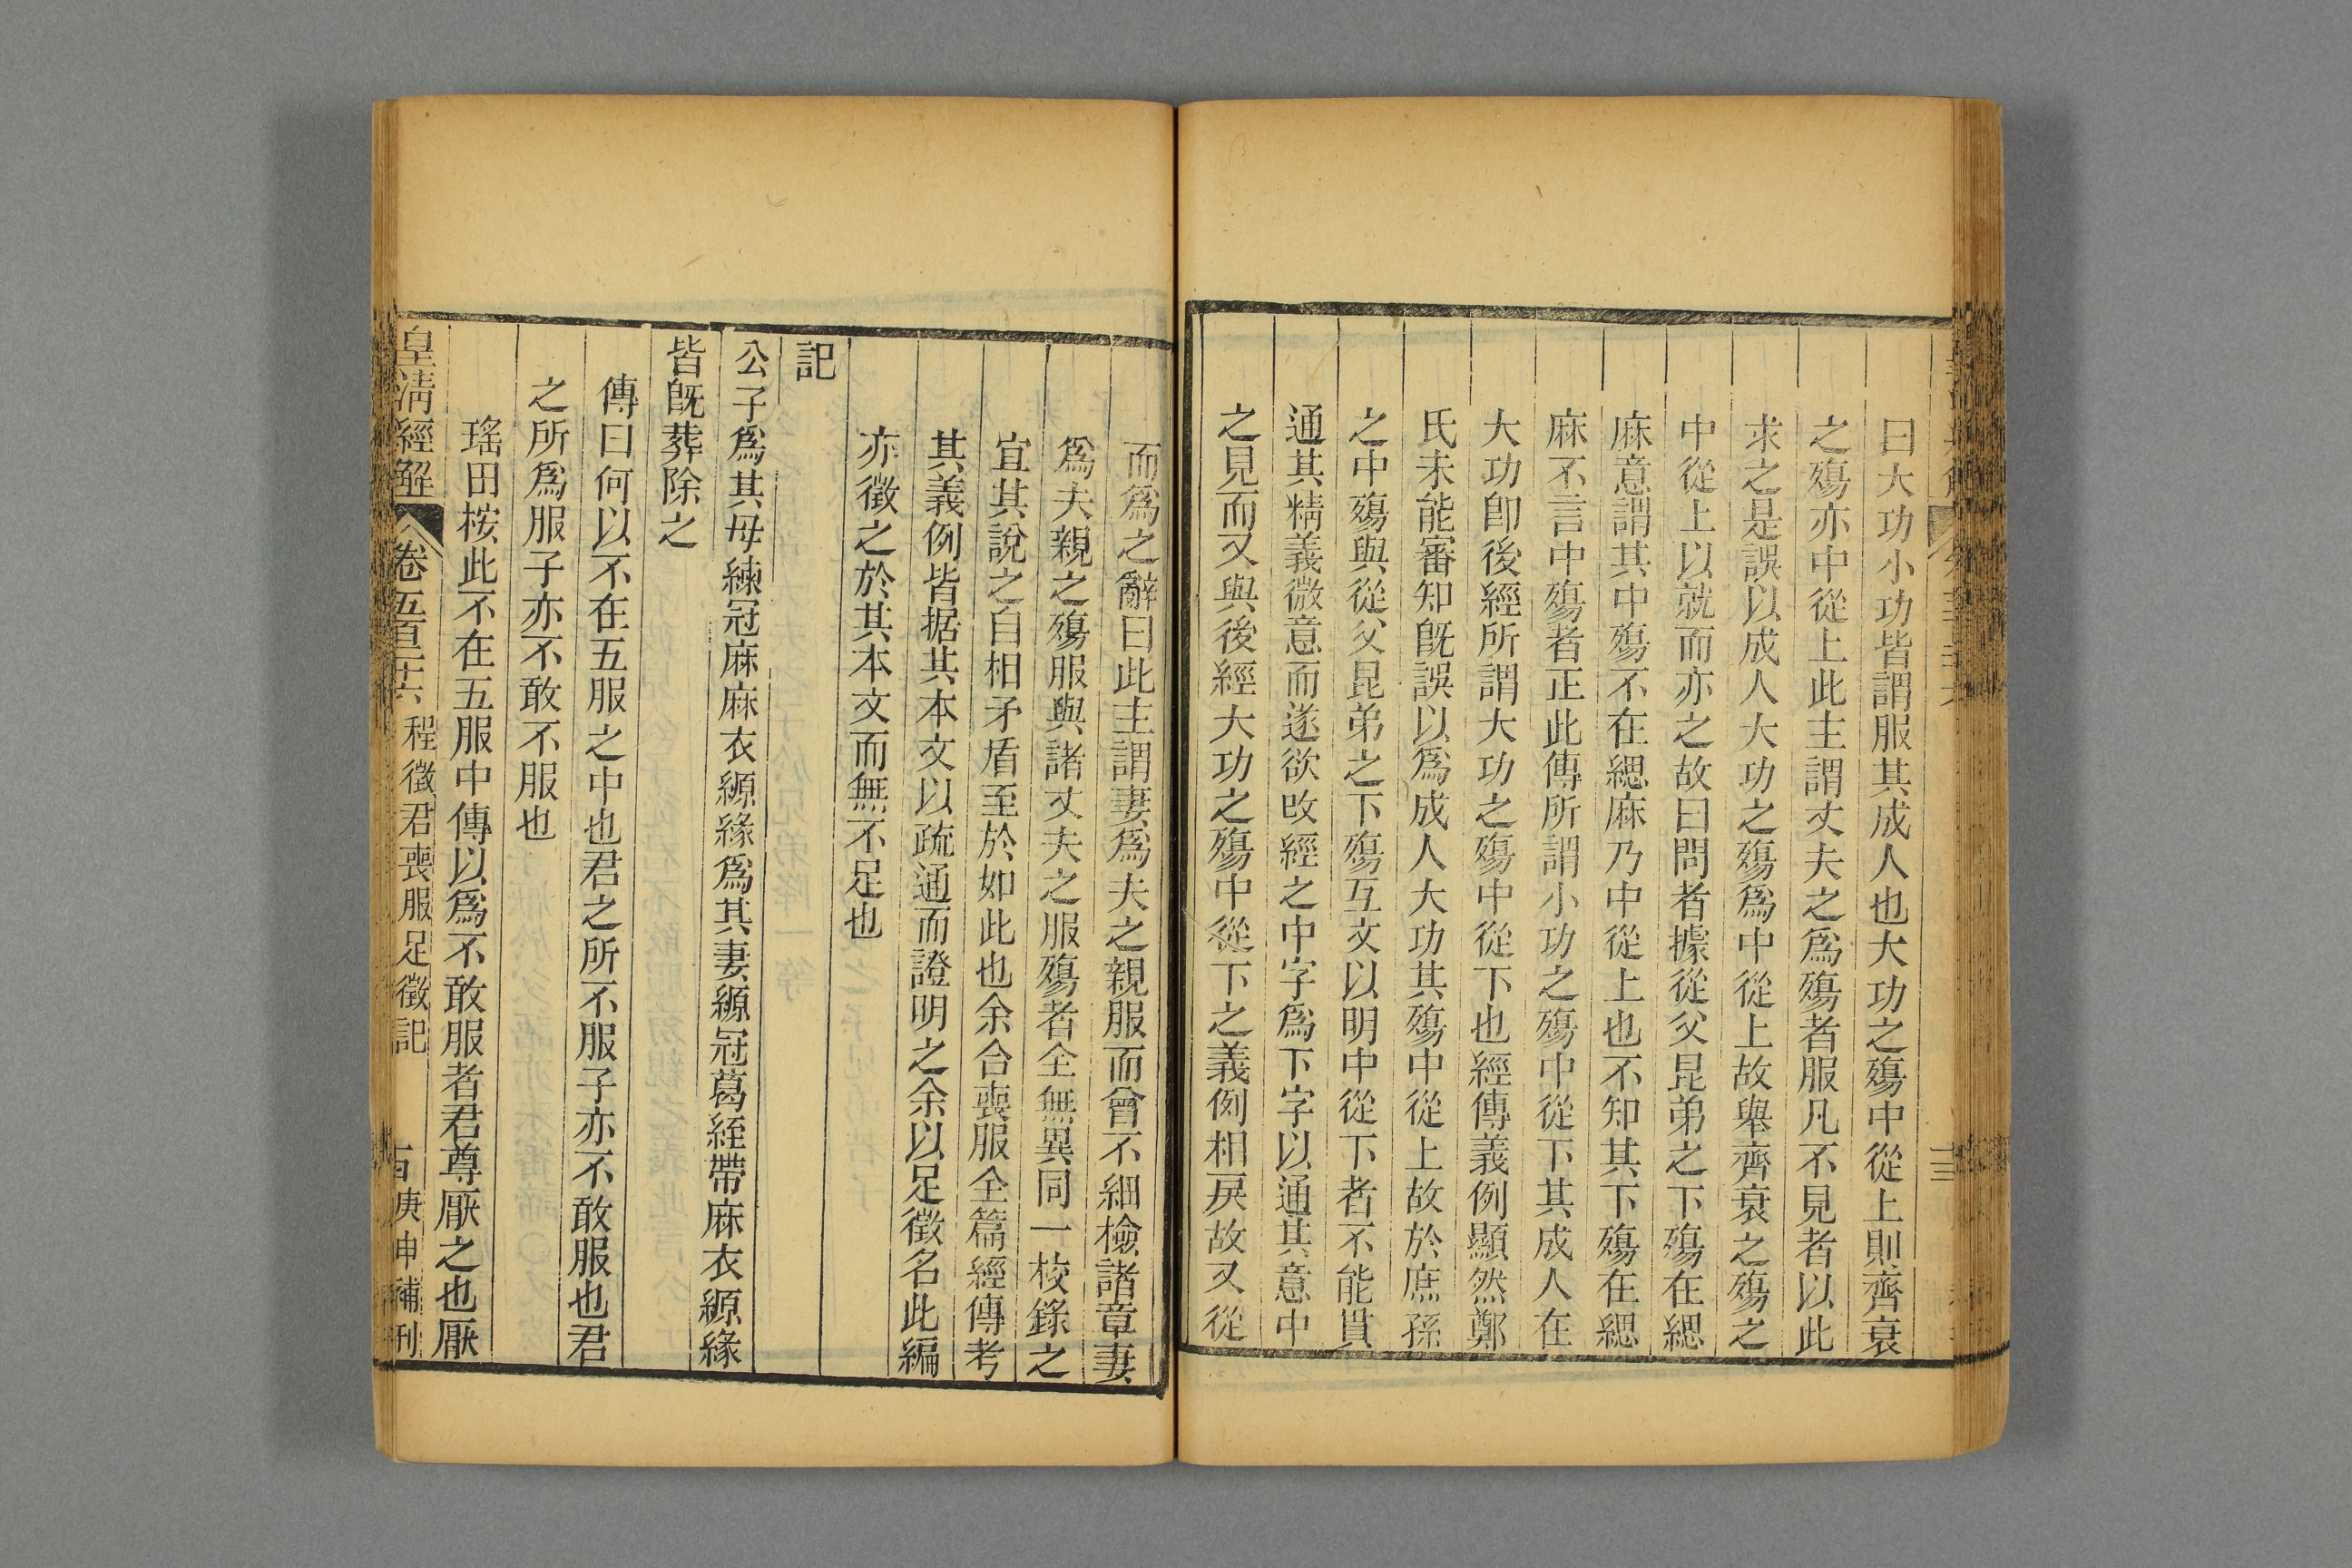 曰大功小功皆謂服其成人也大功之殤中從上則齊衰
之殤亦中從上此主謂丈夫之爲殤者服凡不見者以此
求之是誤以成人大功之殤爲中從上故舉齊衰之殤之
中從上以就而亦之故曰問者據從父昆弟之下殤在緦
麻意謂其中殤不在緦麻乃中從上也不知其下殤在緦
麻不言中殤者正此傳所謂小功之殤中從下其成人在
大功卽後經所謂大功之殤中從下也經傳義例顯然鄭
氏未能審知旣誤以爲成人大功其殤中從上故於庶孫
之中殤與從父昆弟之下殤互文以明中從下者不能貫
通其精義微意而遂欲改經之中字爲下字以通其意中
之見而又與後經大功之殤中從下之義例相戾故又從
而爲之辭曰此主謂妻爲夫之親服而曾不細檢諸章妻
爲夫親之殤服與諸丈夫之服殤者全無異同一校錄之
宜其說之自相矛盾至於如此也余合喪服全篇經傳考
其義例皆据其本文以疏通而證明之余以足徵名此編
亦徵之於其本文而無不足也
記
公子爲其母練冠麻麻衣縓緣爲其妻縓冠葛絰帶麻衣縓緣
皆旣葬除之
傳曰何以不在五服之中也君之所不服子亦不敢服也君
之所爲服子亦不敢不服也
瑤田桉此不在五服中傳以爲不敢服者君尊厭之也厭
皇清經解 卷五百二十六 程徵君喪服足徵記 庚申補刊